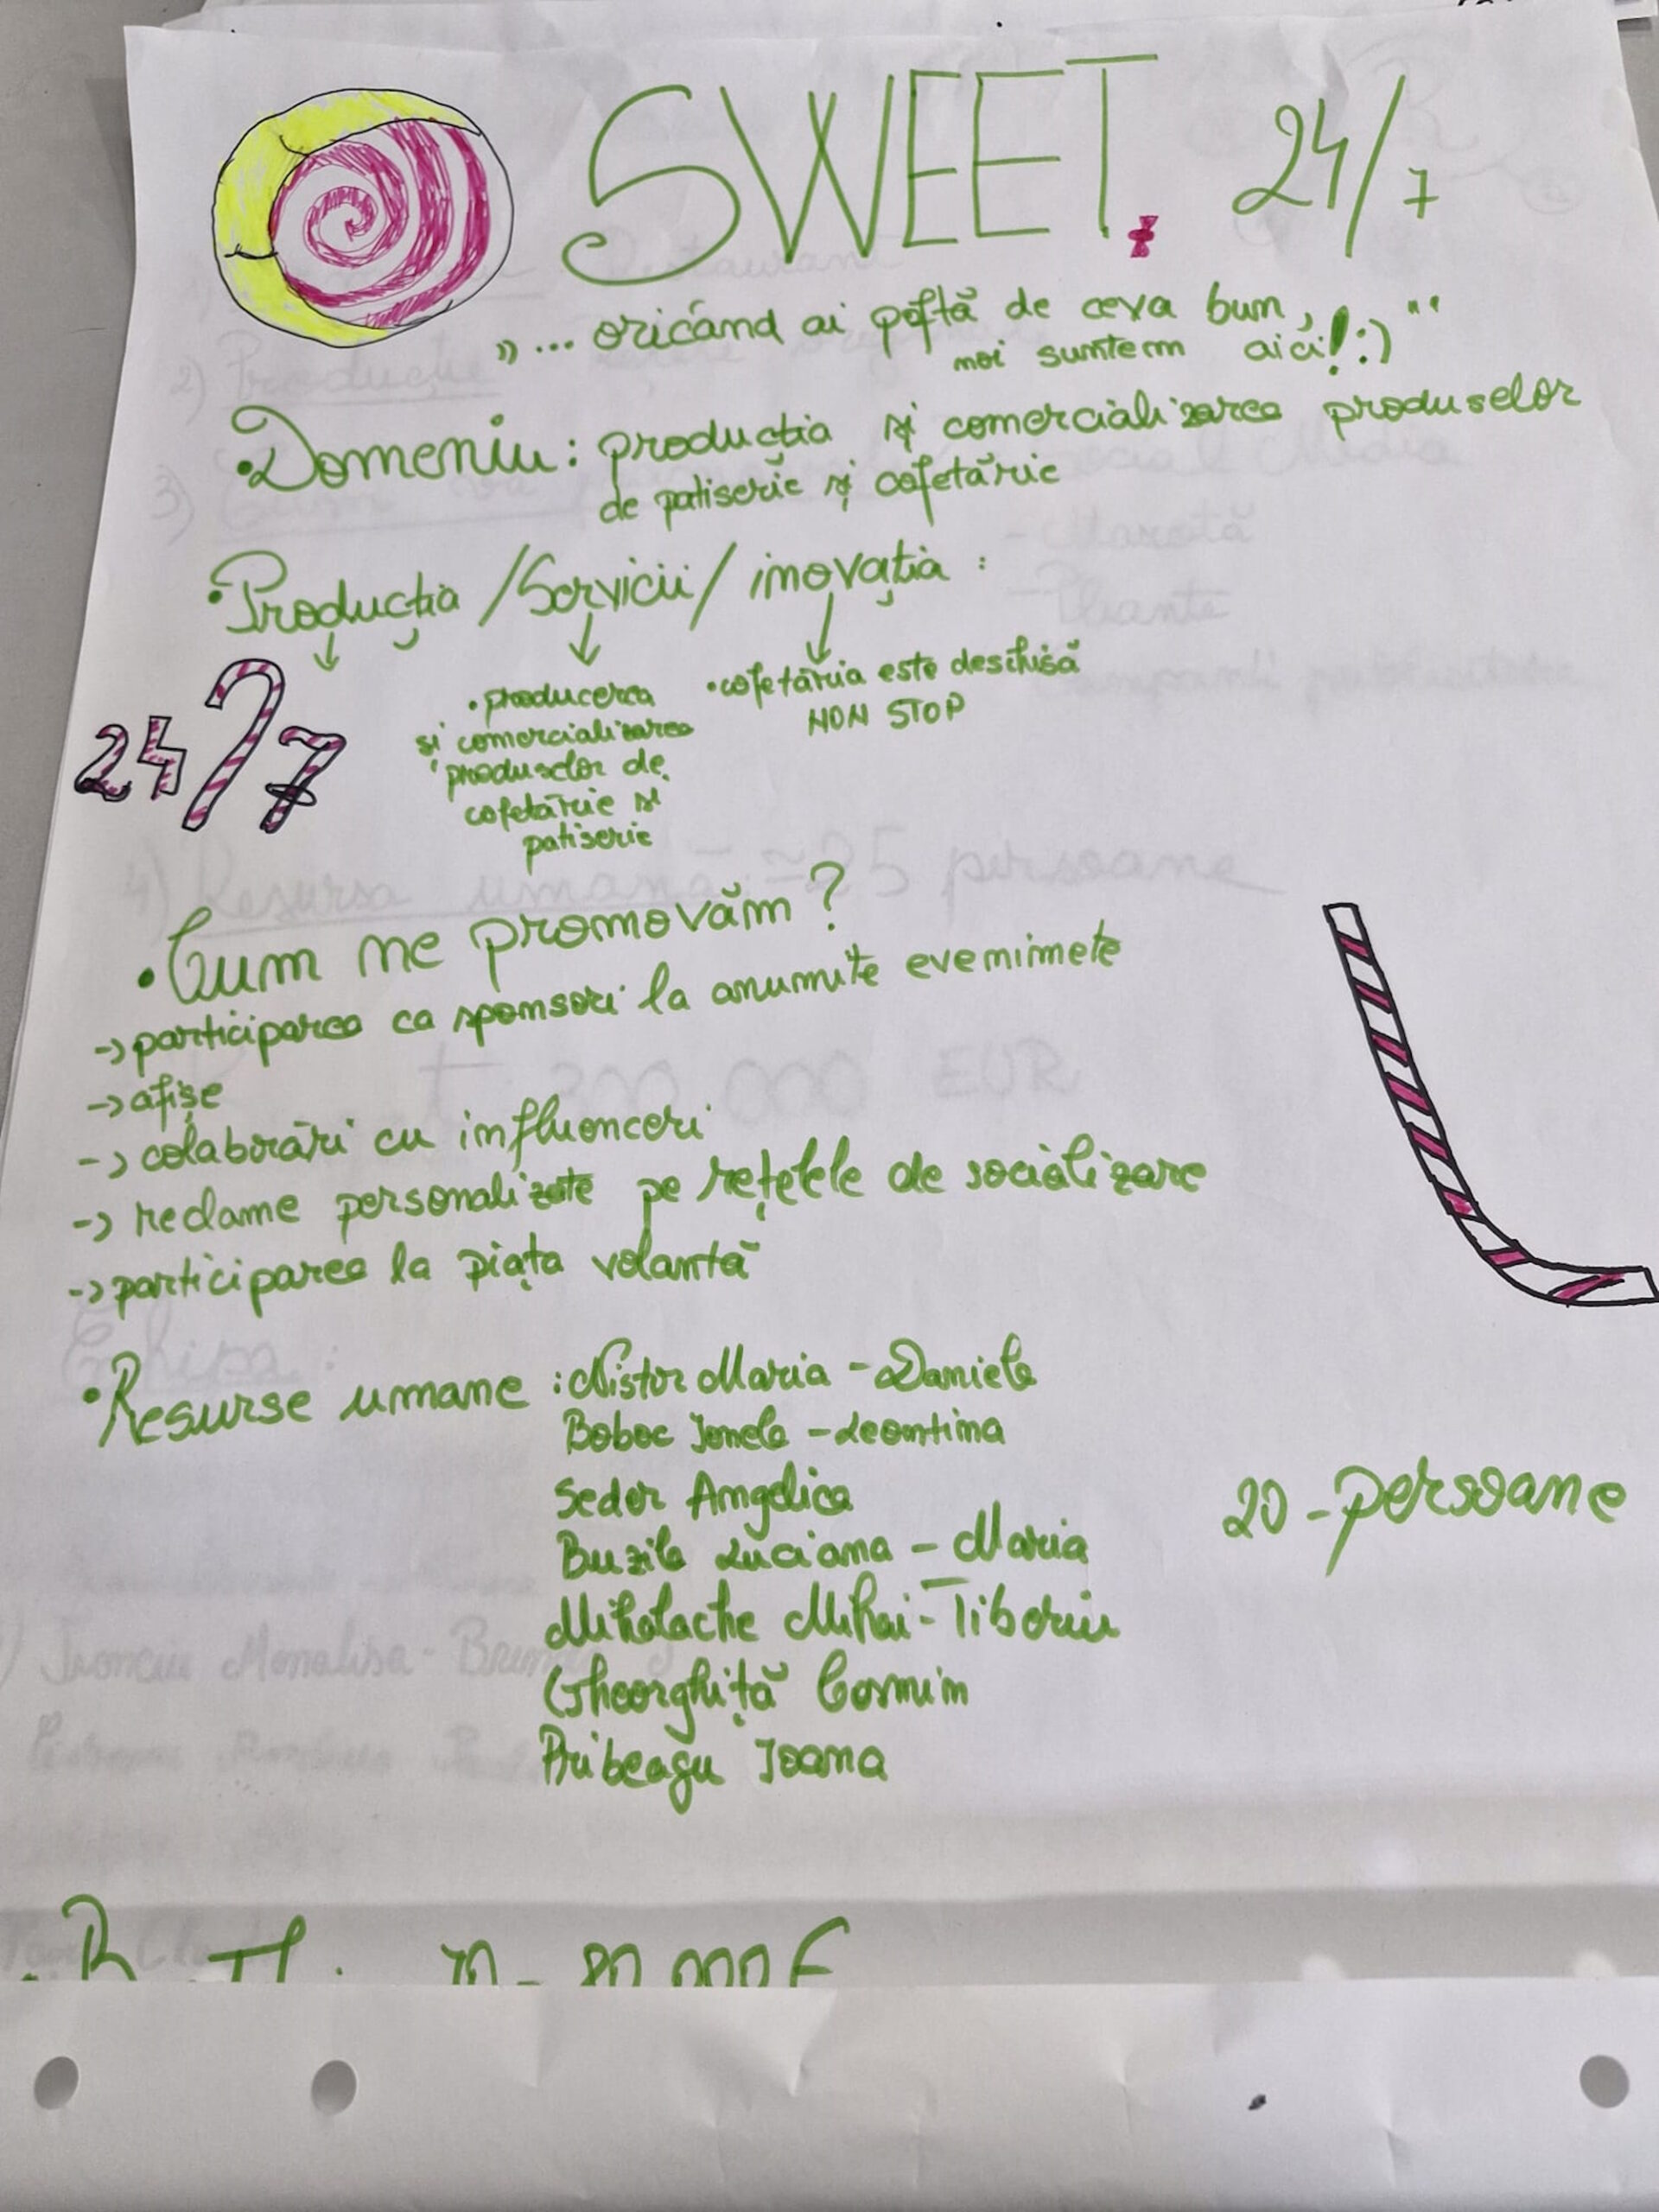 SWEET. 24/7
„... oricând ai poftă de ceva bun,
noi suntem aici! :) "
• Domeniu: producția și comercializarea produselor
de patiserie și cofetărie
• Producția / Servicii / inovația :
24/7
• producerea
și comercializarea
produselor de
cofetărie și
patiserie
• cofetăria este deschisă
NON STOP
• Cum ne promovăm?
-> participarea ca sponsori la anumite evenimete
-> afișe
-> colaborări cu influenceri
-> reclame personalizate pe rețelele de socializare
-> participarea la piața volantă
• Resurse umane : Nistor Maria - Daniela
Boboc Ionela - Leontina
Sedor Angelica
Buzila Luciana - Maria
Miholache Mihai-Tiberiu
Gheorghiță Cosmin
Pribeagu Ioana
20 - persoane